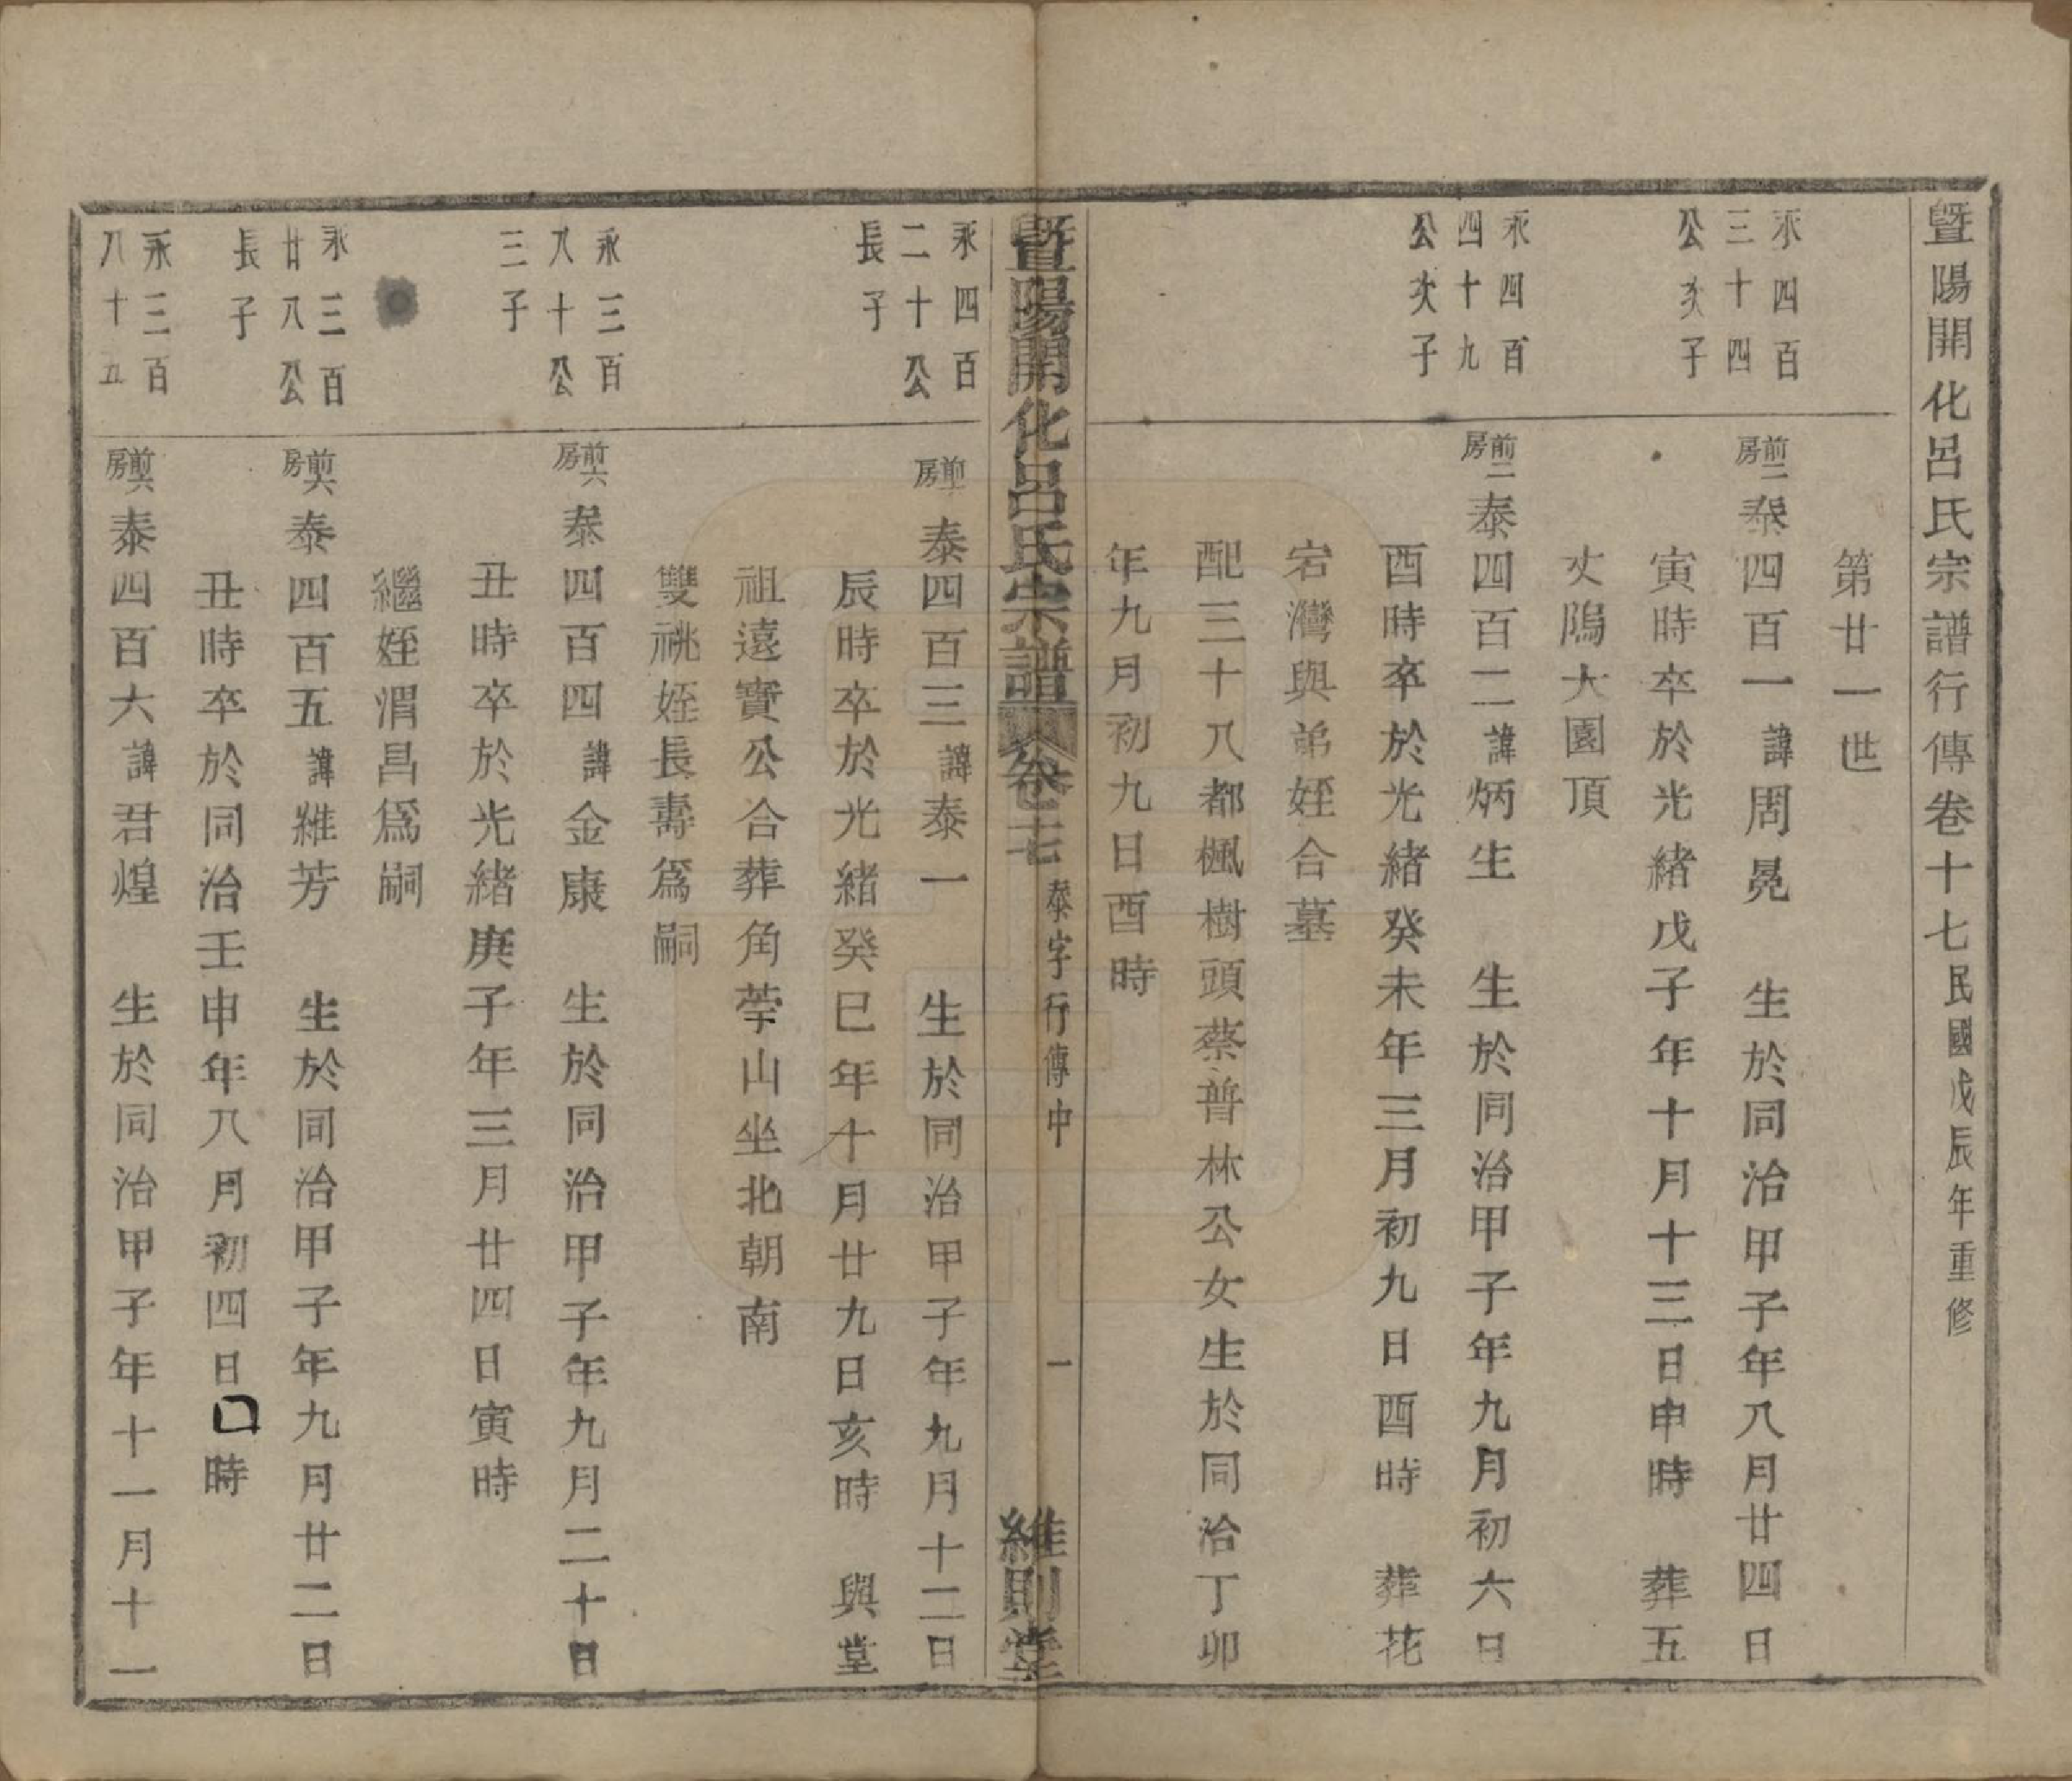 暨陽開化呂氏宗譜行傳卷十七民國戊辰年重修
第廿一世
永四百
三十四
公次子
前二房
泰四百一諱周晃　生於同治甲子年八月廿四日
寅時卒於光緒戊子年十月十三日申時　葬五
丈隖大園頂
永四百
四十九
公次子
前二房
泰四百二諱炳生　生於同治甲子年九月初六日
酉時卒於光緒癸未年三月初九日酉時　葬花
宕灣與弟姪合墓
配三十八都楓樹頭蔡普林公女生於同治丁卯
年九月初九日酉時
暨陽開化呂氏宗譜　卷十七　泰字行傳中　一　維則堂
永四百
二十公
長子
房
泰四百三諱泰一　生於同治甲子年九月十二日
辰時卒於光緒癸巳年十月廿九日亥時　與堂
祖遠寶公合葬角塋山坐北朝南
雙祧姪長壽爲嗣
永三百
八十公
三子
前六房
泰四百四諱金康　生於同治甲子年九月二十日
丑時卒於光緒庚子年三月廿四日寅時
繼姪渭昌爲嗣
永三百
廿八公
長子
前六房
泰四百五諱維芳　生於同治甲子年九月廿二日
丑時卒於同治壬申年八月初四日口時
永三百
八十五
前六房
泰四百六諱君煌　生於同治甲子年十一月十一